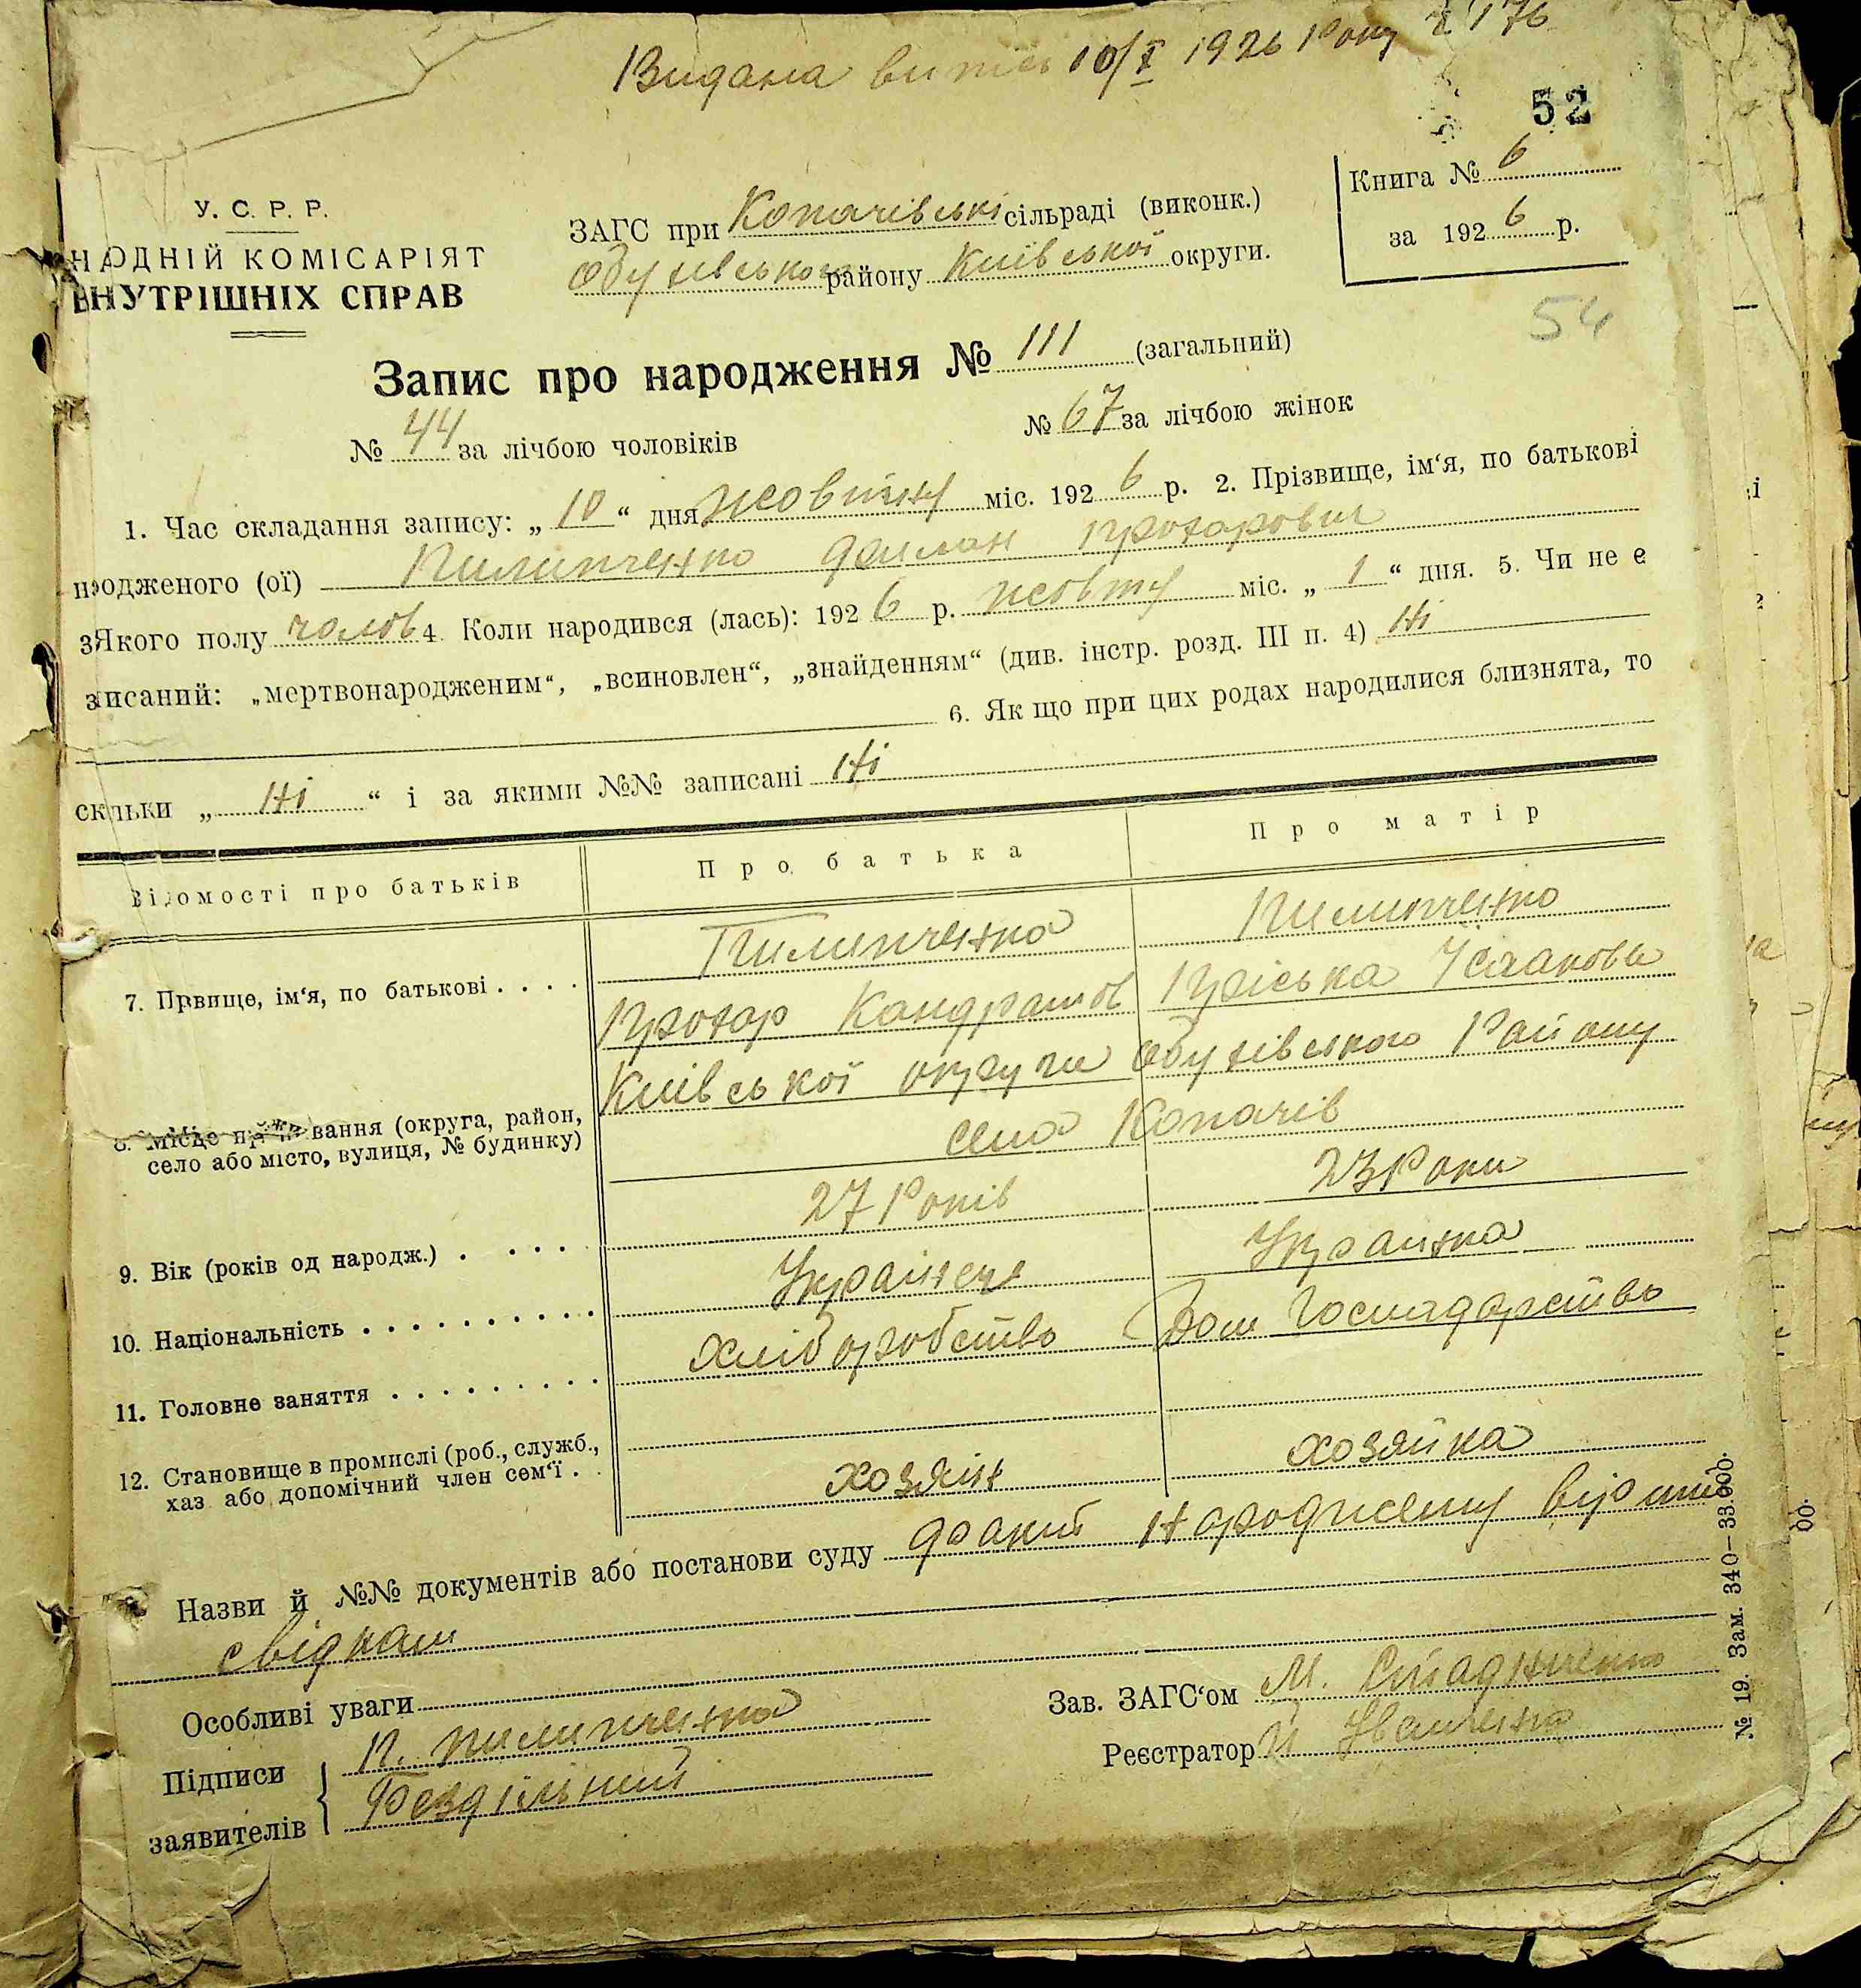 Видана витяг 10/X 1926 Року № 176
52
Книга № 6
за 1926 р.
У. С. Р. Р.
НАОДНІЙ КОМІСАРІЯТ
ВНУТРІШНІХ СПРАВ
ЗАГС при Копачівські сільраді (виконк.)
Обухівського району Київської округи.
54
Запис про народження № 111 (загальний)
№ 44 за лічбою чоловіків № 67 за лічбою жінок
1. Час складання запису: „ 10 “ дня жовтня міс. 1926 р. 2. Прізвище, ім‘я, по батькові
нродженого (ої) Пилипченко Прохорович
3 Якого полу чолов 4. Коли народився (лась): 1926 р. жовтня міс. „ 1 “ дня. 5. Чи не є
записаний: „мертвонародженим“, „всиновлен“, „знайденням“ (див. інстр. розд. III п. 4) Ні
6. Як що при цих родах народилися близнята, то
скільки „ Ні “ і за якими №№ записані Ні
Відомості про батьків Про батька Про матір
7. Првище, ім‘я, по батькові . . . . Пилипченко Пилипченко
Прохор Кандратов Пріська Ісаакова
8. Місце проживання (округа, район, село або місто, вулиця, № будинку) Київської округи Обухівського Району
село Копачів
9. Вік (років од народж.) . . . . 27 Років 23 Роки
10. Національність . . . . . . . . . . Українець Українка
11. Головне заняття . . . . . . . . . Хліборобство Дом Господарство
12. Становище в промислі (роб., служб.,
хаз або допомічний член сем‘ї . . хозяїн хозяйка
Назви й №№ документів або постанови суду факт Народженну
свідками
Особливі уваги
Підписи П. Пилипченко
заявителів Бездільний
Зав. ЗАГС‘ом М. Стадниченко
Реєстратор Й Іванченко
№ 19. Зам. 340—33.000.
00.